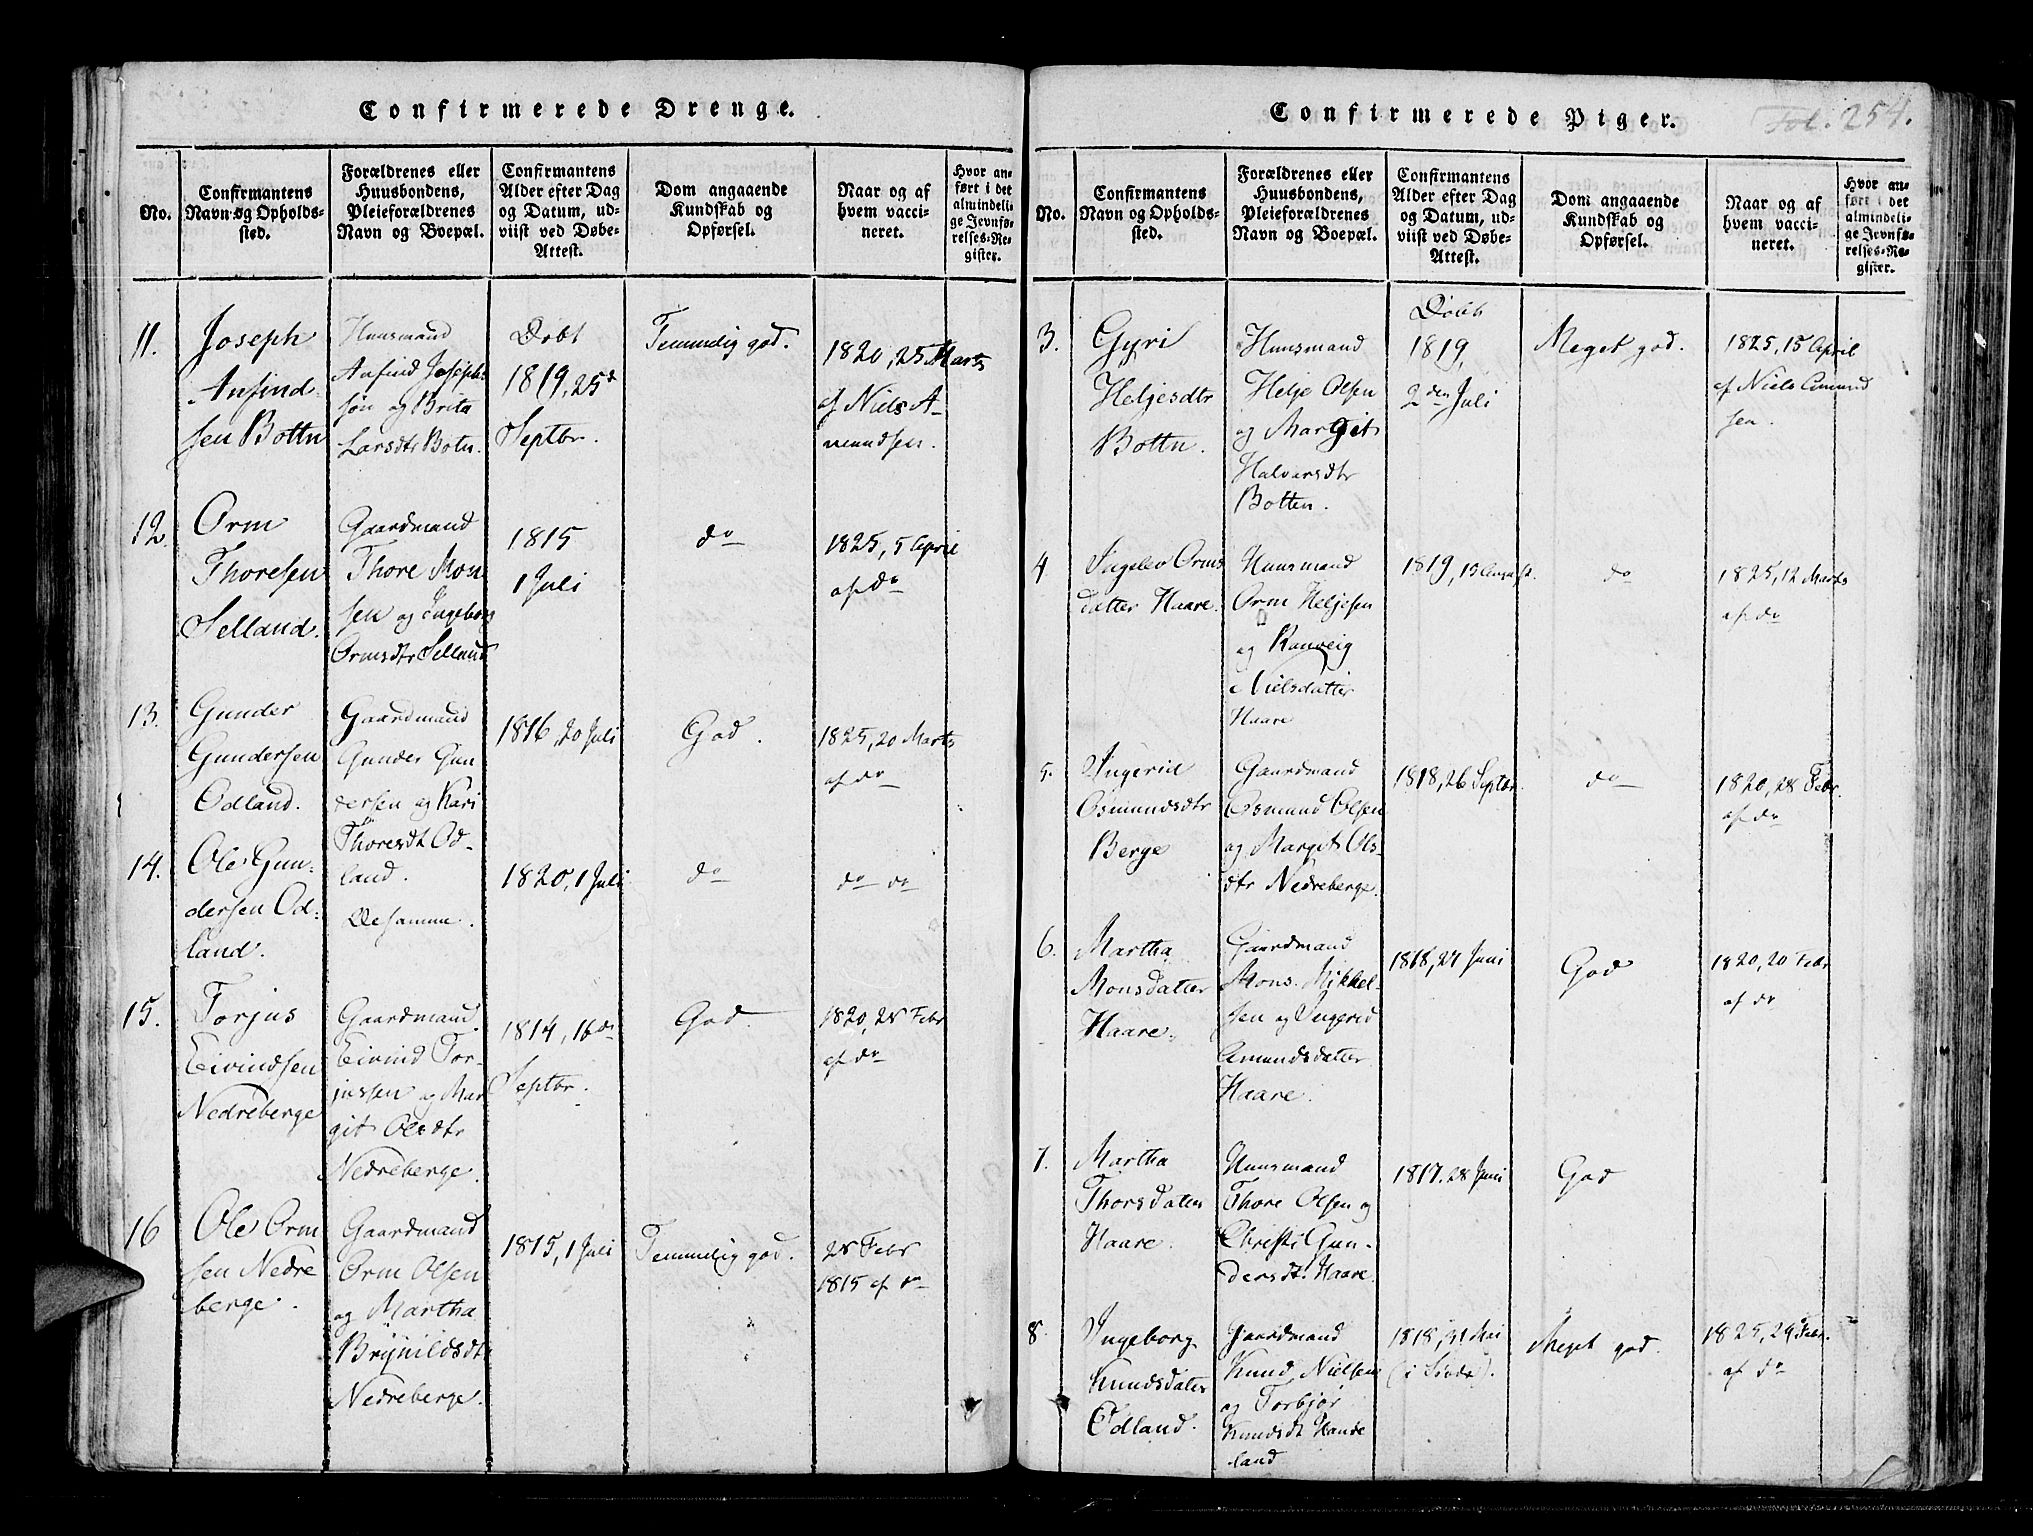 Confirmerede Drenge.
No.
Confirmantens
Navn og Opholds-
sted.
Forældrenes eller
Huusbondens,
Pleieforældrenes
Navn og Boepæl.
Confirmantens
Alder efter Dag
og Datum, ud-
viist ved Døbe-
Attest.
Dom angaaende
Kundskab og
Opførsel.
Naar og af
hvem vacci-
neret.
Hvor an-
ført i det
almindeli-
ge Jevnfø-
relses-Re-
gister.
11.
Joseph
Anfind-
sen Bottn
Huusmand
Anfind Joseph-
søn og Brita
Larsdtr Botn.
Døbt
1819, 25de
Septbr.
Temmelig god.
1820, 25 Marts
af Niels A-
mundsen.
12.
Orm
Thoresen
Selland.
Gaardmand
Thore Mon
sen og Ingeborg
Ormsdtr Selland
1815
1 Juli
do
1825, 5 April
af do
13.
Gunder
Gundersen
Odland.
Gaardmand
Gunder Gun
dersen og Kari
Thoresdt Od-
land.
1816, 20 Juli
God.
1825, 20 Marts
af do
14.
Ole Gun-
dersen Od-
land.
De samme.
1820, 1 Juli
do
do do
15.
Torjus
Eivindsen
Nedreberge
Gaardmand
Eivind Tor-
jussen og Mar
git Olsdtr
Nedreberge.
1814, 16de
Septbr.
God.
1820, 28 Febr
af do
16
Ole Orm
sen Nedre
berge.
Gaardmand
Orm Olsen
og Martha
Brynildsdt
Nedreberge.
1815, 1 Juli
Temmelig god.
28 Febr
1815 af do
Confirmerede Piger.
Fol. 254.
No.
Confirmantens
Navn og Opholds-
sted.
Forældrenes eller
Huusbondens,
Pleieforældrenes
Navn og Boepæl.
Confirmantens
Alder efter Dag
og Datum, ud-
viist ved Døbe-
Attest.
Dom angaaende
Kundskab og
Opførsel.
Naar og af
hvem vacci-
neret.
Hvor an-
ført i det
almindeli-
ge Jevnfø-
relses-Re-
gister.
3.
Gyri
Heljesdtr
Bottn.
Huusmand
Helje Olsen
og Margit
Halvorsdtr
Botten.
Døbt
1819,
2den Juli
Meget god.
1825, 15 April
af Niels Amund
sen.
4
Ingelev Orms
datter Haare.
Huusmand
Orm Heljesen
og Ranveig
Nielsdatter
Haare
1819, 15 August.
do
1825, 12 Marts
af do
5.
Ingerid
Osmundsdtr
Berge
Gaardmand
Osmund Olsen
og Margit Ols-
dtr Nedreberge.
1818, 26 Septbr.
do
1820, 28 Febr.
af do
6.
Martha
Monsdatter
Haare.
Gaardmand
Mons Mikkel-
sen og Ingerid
Amundsdatter
Haare.
1818, 27 Juni
God
1820, 20 Febr
af do
7.
Martha
Thorsdatter
Haare.
Huusmand
Thore Olsen og
Christi Gun-
dersdt. Haare.
1817. 28 Juni
God
8.
Ingeborg
Knudsdatter
Odland.
Gaardmand
Knud Nielsen
og Torbjør
Knudsdt Hande
land
1818, 31 Mai
Meget god.
1825, 29 Febr.
af do